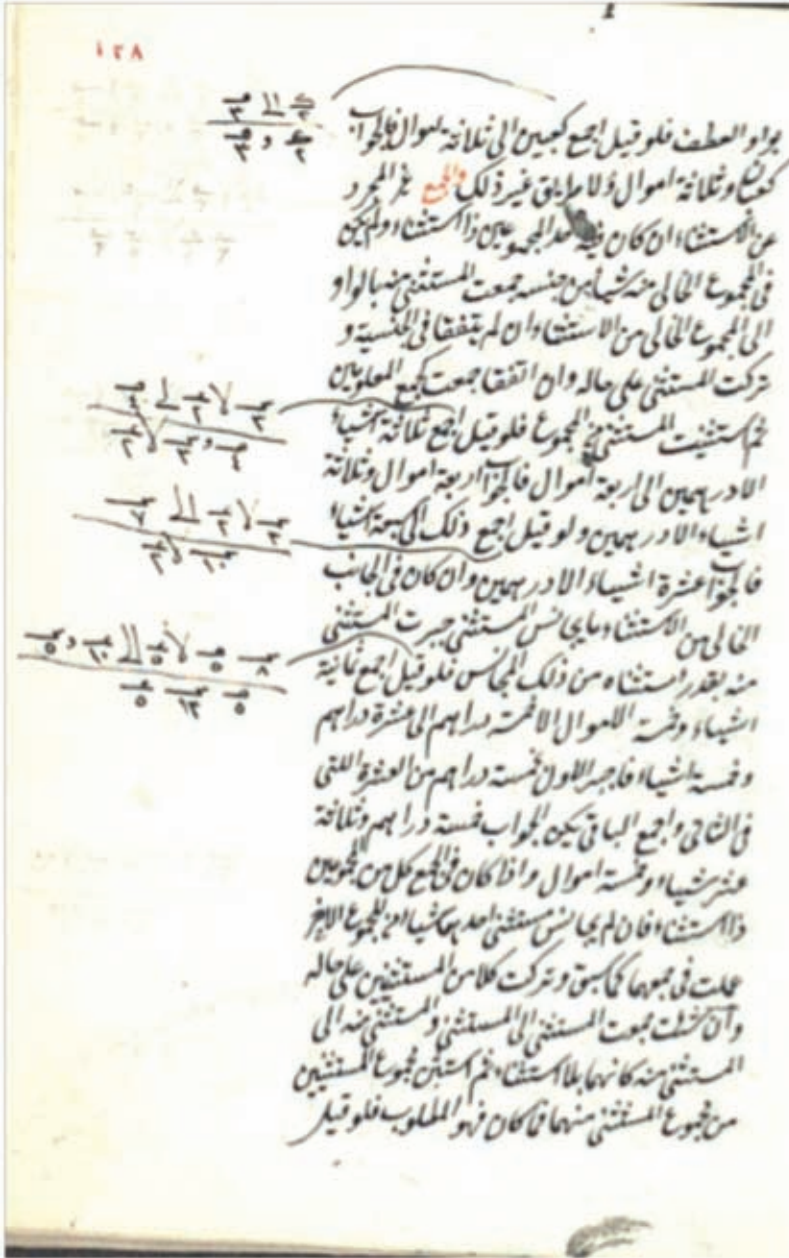 ١٢٨
بواو العطف فلو قيل اجمع كعبين الى ثلاثة اموال فالجواب
كعبان وثلاثة اموال ولا طريق غير ذلك والجمع غير المجرد
عن الاستثناء ان كان فيه احد المجموعين ذا استثناء ولم يكن
فى المجموع الخالى منه شيأ من جنسه جمعت المستثنى منه بالواو
الى المجموع الخالى من الاستثناء ان لم يتفقا فى الجنسية و
تركت المستثنى على حاله وان اتفقا جمعت كجمع المعلومين
ثم استثنيت المستثنى من المجموع فلو قيل اجمع ثلاثة اشياء
الا درهمين الى اربعة اموال فالجواب اربعة اموال وثلاثة
اشياء الا درهمين ولو قيل اجمع ذلك الى سبعة اشياء
فالجواب عشرة اشياء الا درهمين وان كان فى الجانب
الخالى من الاستثناء ما يجانس المستثنى جبرت المستثنى
منه بقدر استثناه من ذلك المجانس فلو قيل اجمع ثمانية
اشياء وخمسة اموال الا خمسة دراهم الى عشرة دراهم
وخمسة اشياء فاجبر الاول بخمسة دراهم من العشرة اللتى
فى الثانى واجمع الباقى يكن الجواب خمسة دراهم وثلاثة
عشر شياء وخمسة اموال واذا كان فى الجمع كل من المجموعين
ذا استثناء فان لم يجانس مستثنى احدهما شيأ من المجموع الاخر
عملت فى جمعهما كما سبق وتركت كلا من المستثنين على حاله
وان شئت جمعت المستثنى الى المستثنى والمستثنى منه الى
المستثنى منه كانهما بلا استثناء ثم استثن مجموع المستثنيين
من مجموع المستثنى منهما فما كان فهو المطلوب فلو قيل